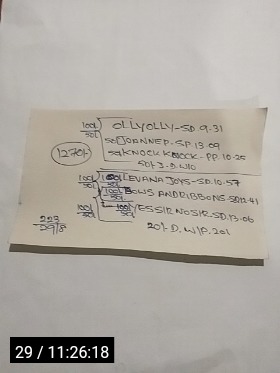 100/50/ OLLYOLLY-SD.9-31
50/ JOANNED-SP.13-09
1270/- 50/ KNOCK KNOCK-PP.10-25
50/-3.D.W/O
100/50/ LEVANA JOYS-SD.10-57
100/50/ BOWS AND RIBBONS-SD.12-41
100/50/ YES SIR NO SIR-SD.13-06
20/-D.W/P.20/
29 / 11:26:18